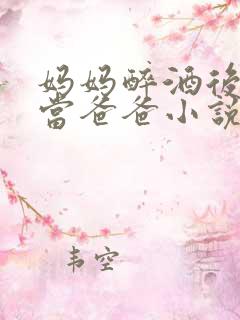 妈妈醉酒後
當爸爸小説
韦空